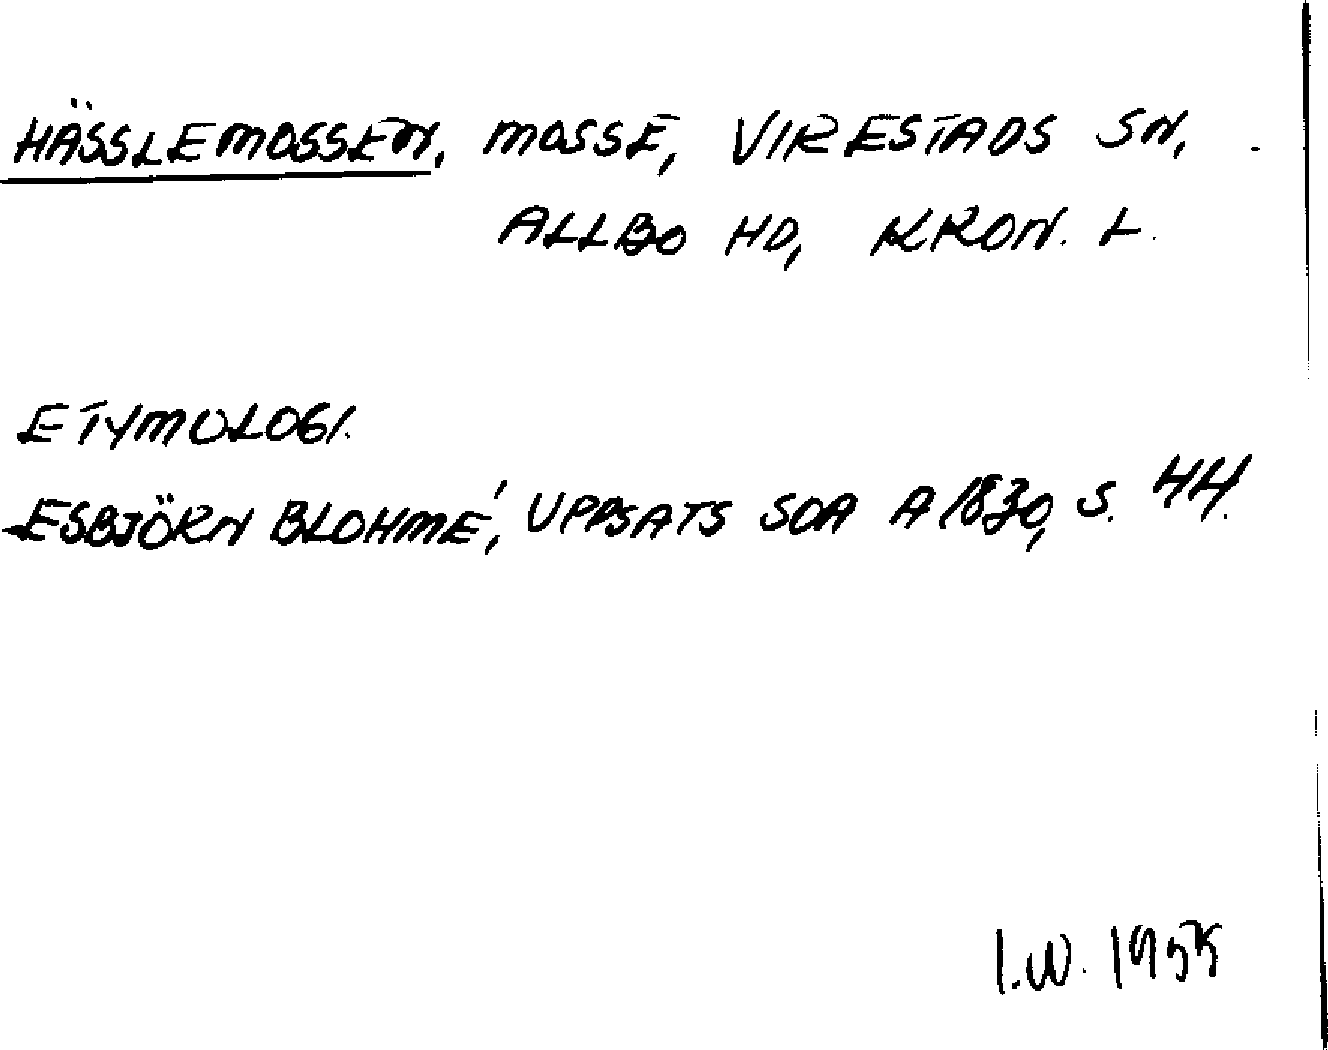 HÄSSLEMOSSEN, MOSSE, VIRESTADS SN,
ALLBO HD, KRON. L.
ETYMOLOGI.
ESBJÖRN BLOHMÉ, UPPSATS SOA A 1830, S. 44.
I.W. 1955